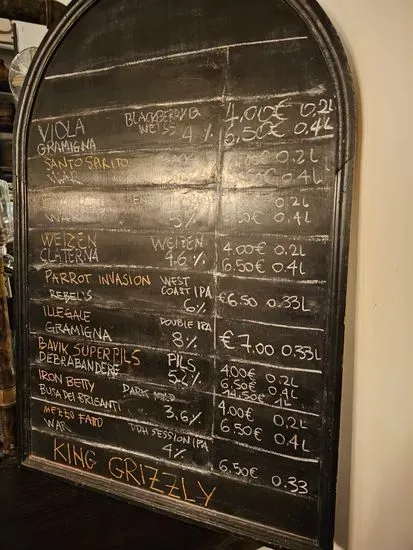 VIOLA BLACKBERRY
GRAMIGNA WEISS 4% 4,00€ 0.2L
6,50€ 0.4L
SANTO SPIRITO 0.2L
WAR 0.4L
0.2L
WAR 5% 0€ 0.4L
WEIZEN WEIZEN 4.00€ 0.2L
CLATERNA 4.6% 6.50€ 0.4L
PARROT INVASION WEST COAST IPA
REBEL'S 6% €6.50 0.33L
ILLEGALE DOUBLE IPA
GRAMIGNA 8% €7.00 0.33L
BAVIK SUPERPILS PILS 4.00€ 0.2L
DEBRABANDERE 5.2% 6.50€ 0.4L
14.50€ 1L
IRON BETTY DARK MILD 4.00€ 0.2L
BUSA DEI BRIGANTI 3.6% 6.50€ 0.4L
MEZZO FATTO DDH SESSION IPA
WAR 4% 6.50€ 0.33
KING GRIZZLY